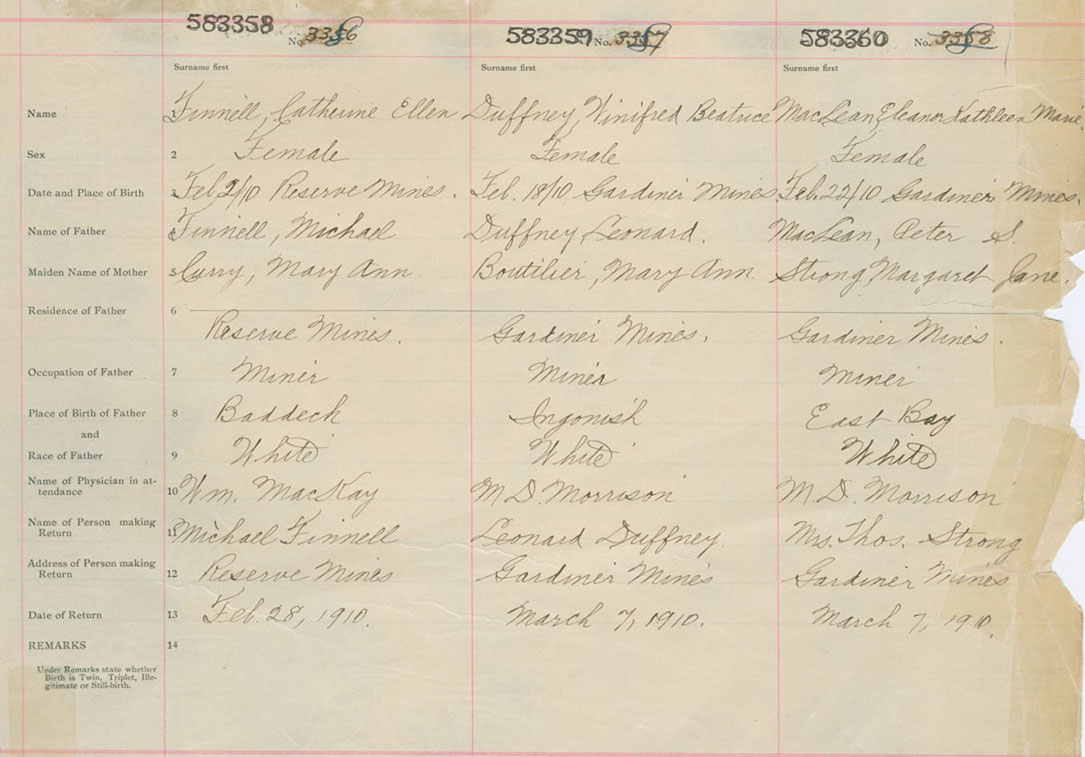 583358 No. 3356 583359 No. 3357 583360 No. 3358
Surname first Surname first Surname first
Name Finnell, Catherine Ellen Duffney, Winifred Beatrice MacLean, Eleanor Kathleen Marie.
Sex 2 Female Female Female
Date and Place of Birth 3 Feb 2/10 Reserve Mines. Feb. 18/10 Gardiner Mines Feb. 22/10 Gardiner Mines.
Name of Father Finnell, Michael Duffney, Leonard. MacLean, Peter S.
Maiden Name of Mother 5 Curry, Mary Ann Boutilier, Mary Ann Strong, Margaret Jane.
Residence of Father 6
Reserve Mines. Gardiner Mines. Gardiner Mines.
Occupation of Father 7 Miner Miner Miner
Place of Birth of Father 8 Baddeck Ingonish East Bay
and
Race of Father 9 White White White
Name of Physician in at-
tendance 10 Wm. MacKay M.D. Morrison M.D. Morrison
Name of Person making
Return 11 Michael Finnell Leonard Duffney. Mrs. Thos. Strong
Address of Person making
Return 12 Reserve Mines Gardiner Mines Gardiner Mines
Date of Return 13 Feb. 28, 1910. March 7, 1910. March 7, 1910.
REMARKS 14
Under Remarks state whether
Birth is Twin, Triplet, Ille-
gitimate or Still-birth.